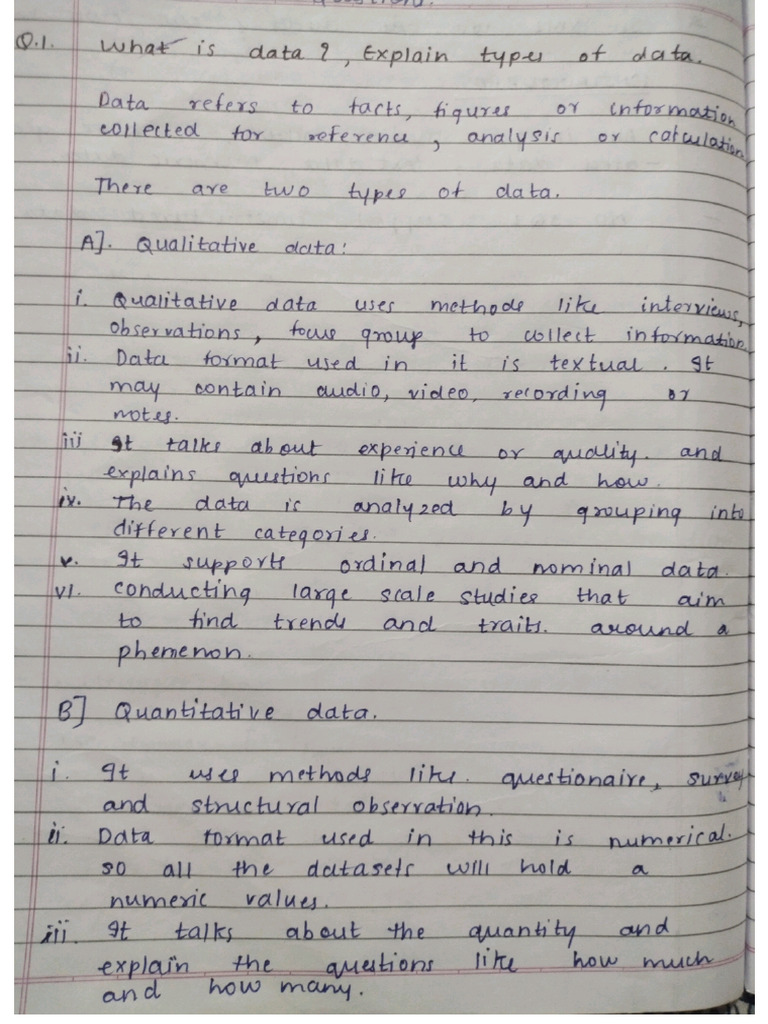 Q.1. What is data ?, Explain types of data.
Data refers to facts, figures or information
collected for reference, analysis or calculation
There are two types of data.
A]. Qualitative data:
i. Qualitative data uses methods like interviews,
observations, focus group to collect information
ii. Data format used in it is textual. It
may contain audio, video, recording or
notes.
iii It talks about experience or quality. and
explains questions like why and how.
iv. The data is analyzed by grouping into
different categories.
v. It supports ordinal and nominal data.
vi. conducting large scale studies that aim
to find trends and traits. around a
phemenon.
B] Quantitative data.
i. It uses methods like. questionaire, survey
and structural observation.
ii. Data format used in this is numerical.
so all the datasets will hold a
numeric values.
iii. It talks about the quantity and
explain the questions like how much
and how many.